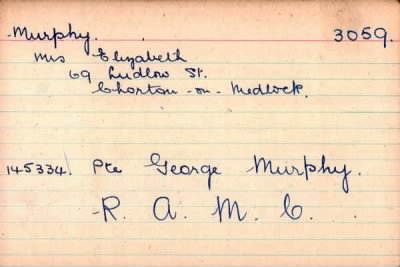 Murphy. 3059.
Mrs Elizabeth
69 Ludlow St.
Chorlton-on-Medlock.
145334. Pte George Murphy.
R. A. M. C.